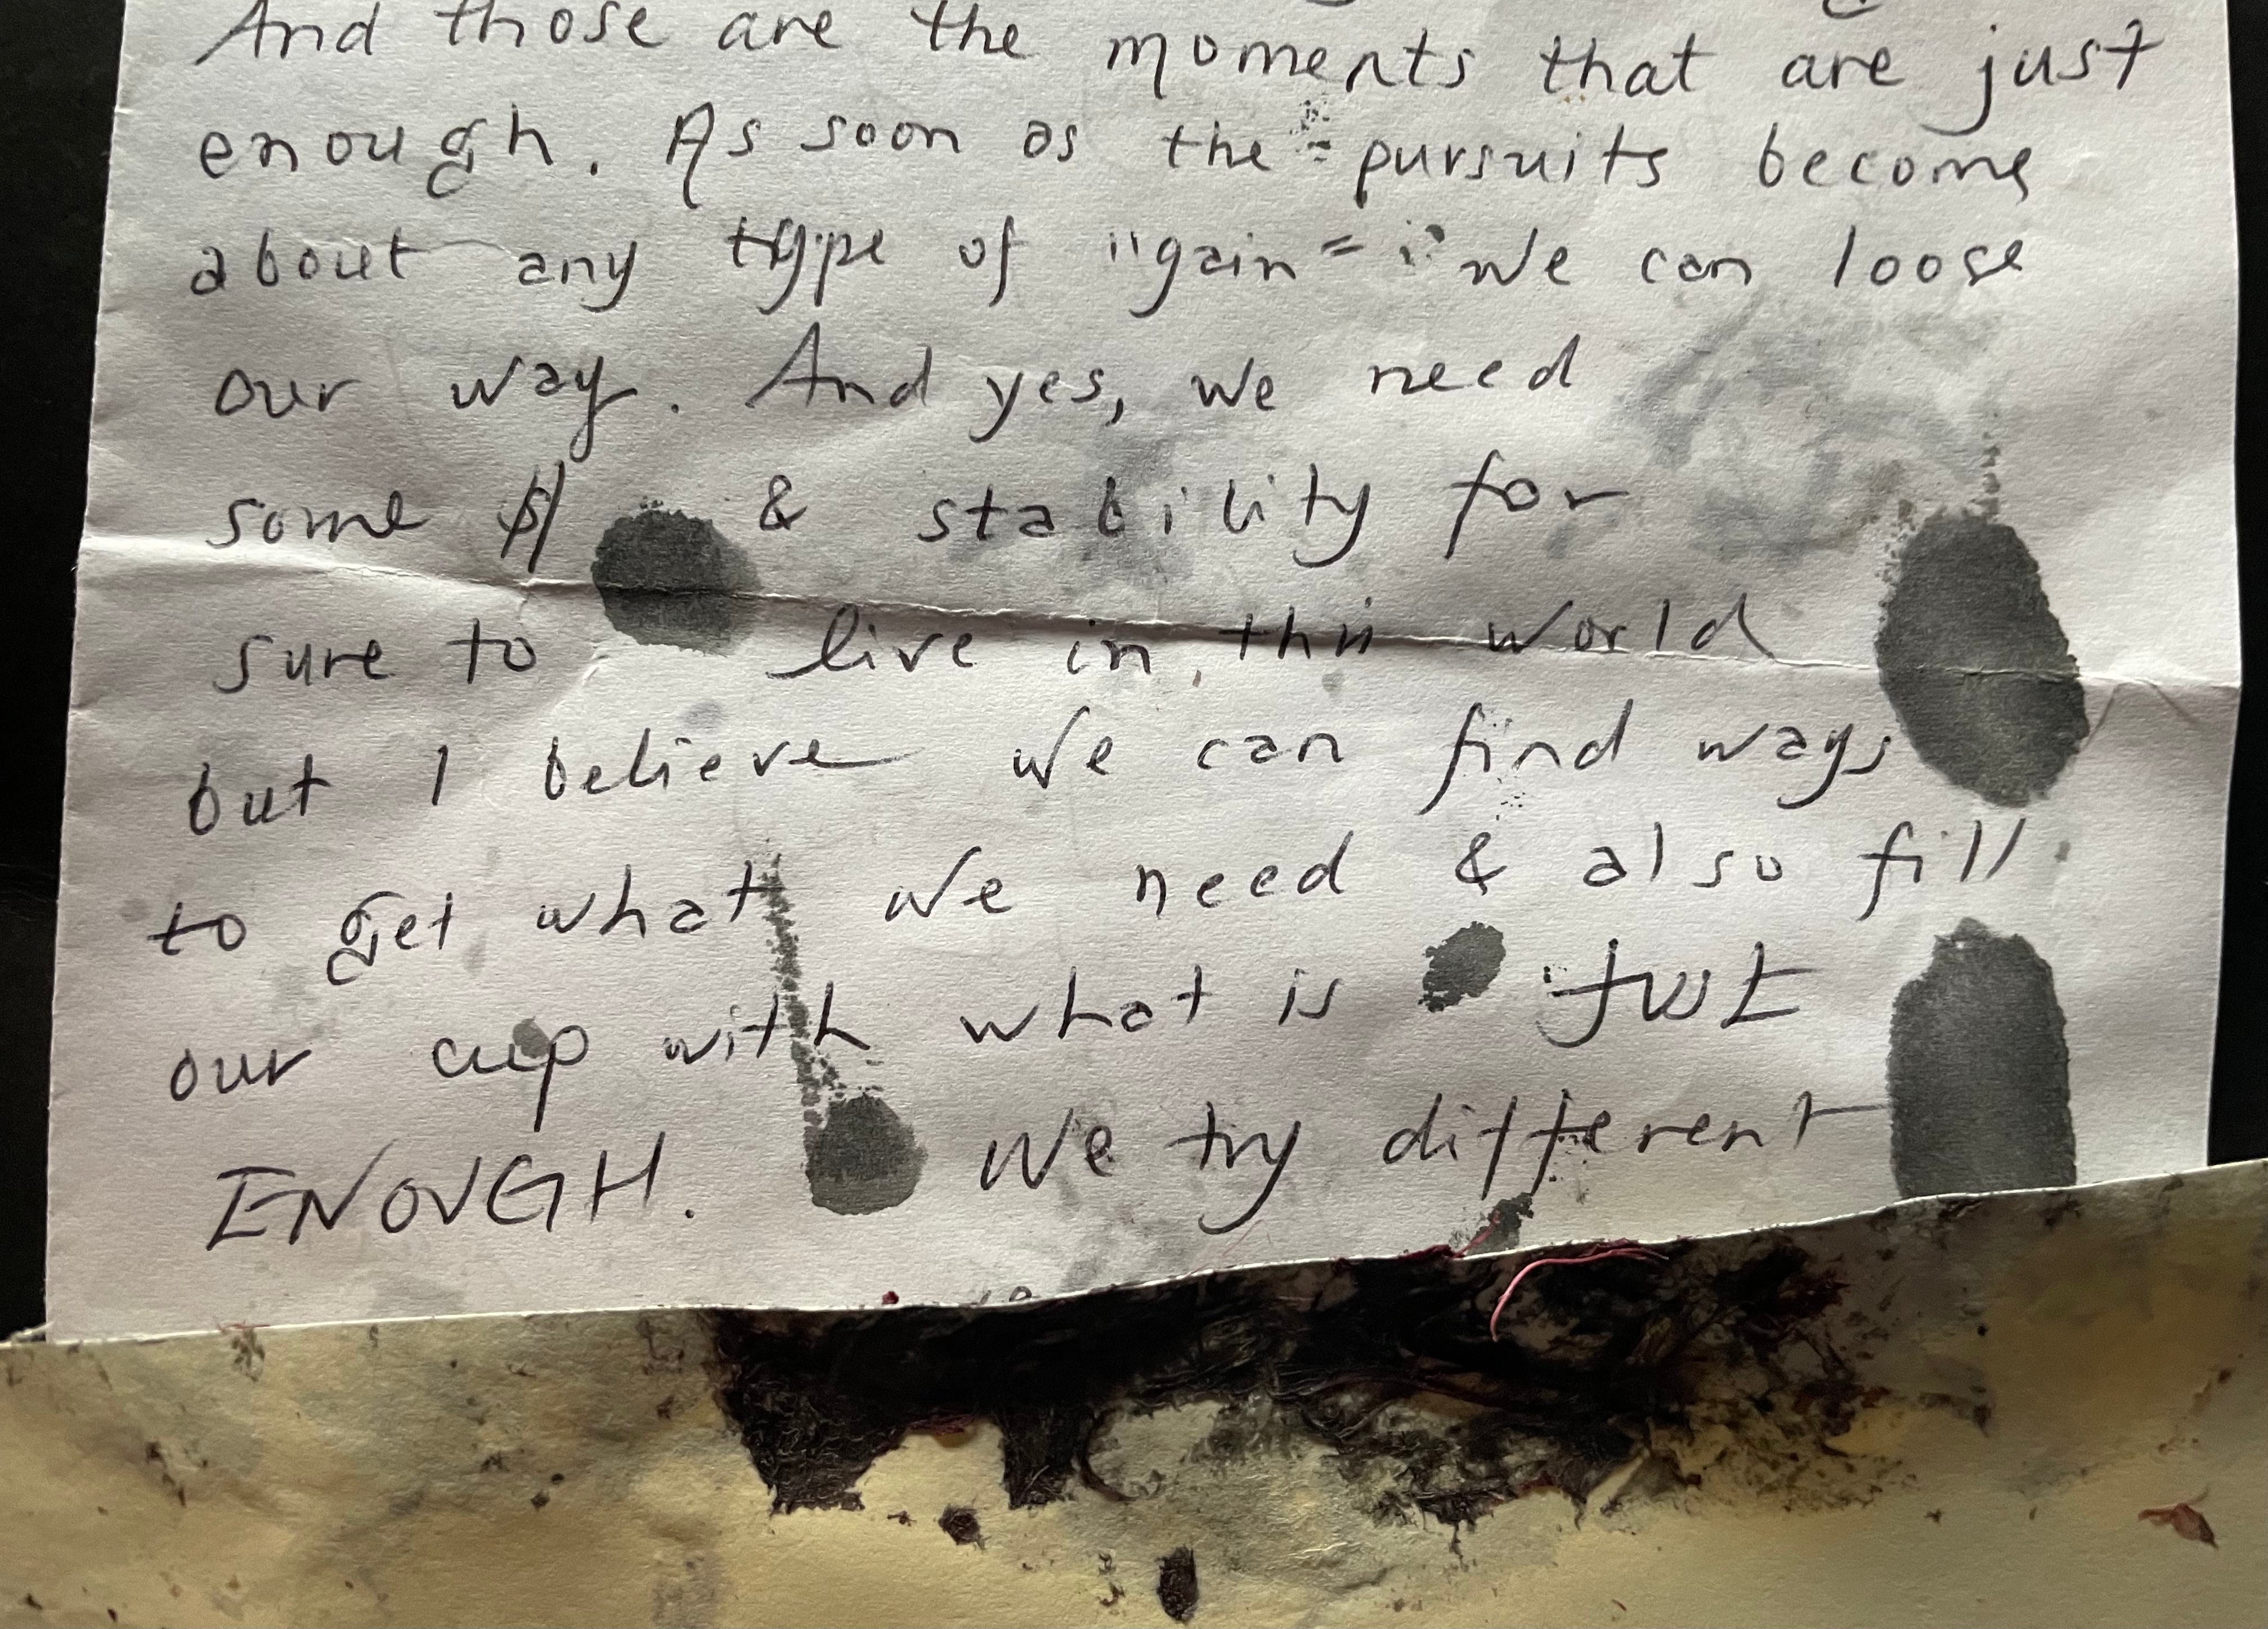 And those are the moments that are just
enough. As soon as the pursuits become
about any type of "gain" we can loose
our way. And yes, we need
some $ & stability for
sure to live in this world
but I believe we can find ways
to get what we need & also fill
our cup with what is just
ENOUGH. We try different